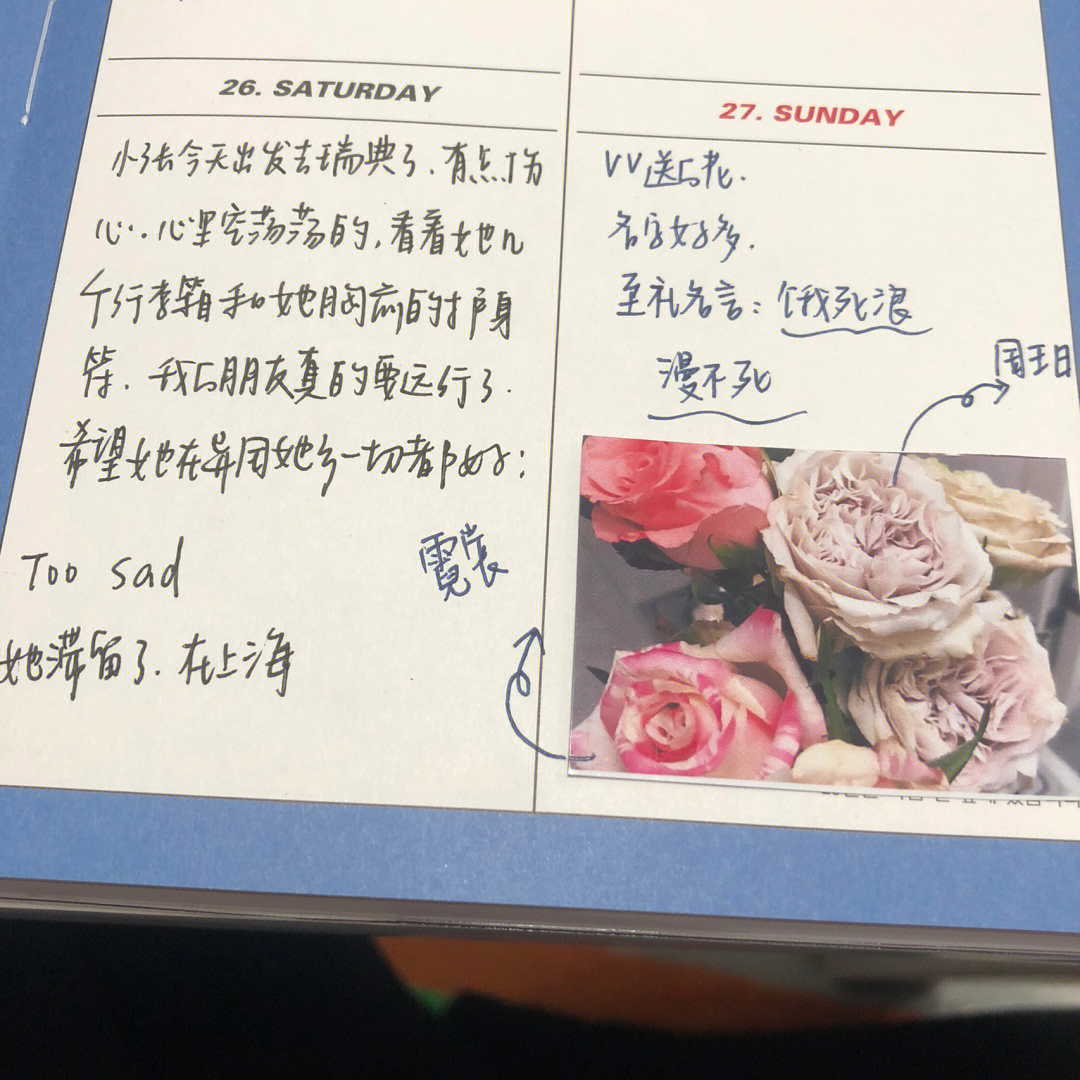 26. SATURDAY
小张今天出发去瑞典了.有点伤
心..心里空荡荡的,看着她几
个行李箱和她胸前的护身
符.我的朋友真的要远行了.
希望她在异国她乡一切都好:
Too sad
她滞留了.在上海
霓裳
27. SUNDAY
VV送的花.
名字好多.
至礼名言:饿死浪
漫不死
国王日